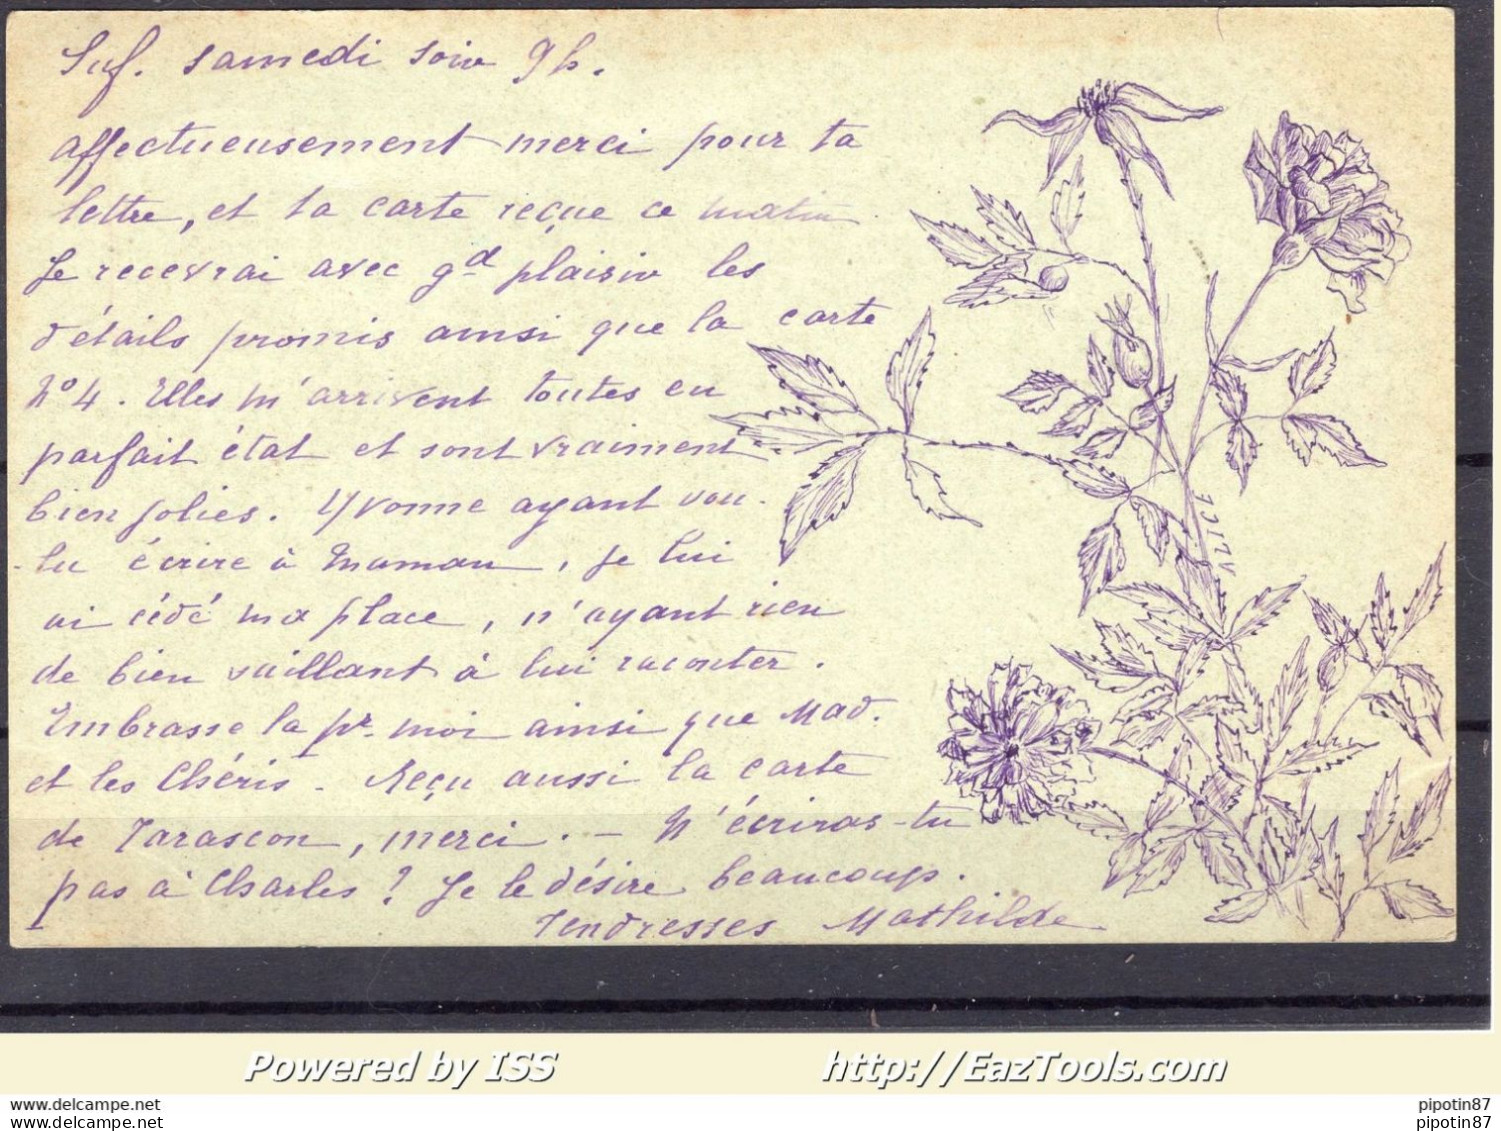 Suf. samedi soir 9 h.
affectueusement merci pour ta
lettre, et ta carte reçue ce matin
Je recevrai avec gd plaisir les
détails promis ainsi que la carte
No 4. Elles m'arrivent toutes en
parfait état et sont vraiment
bien jolies. Yvonne ayant vou-
-lu écrire à Maman, je lui
ai cédé ma place, n'ayant rien
de bien saillant à lui raconter.
Embrasse la pr. moi ainsi que Mad.
et les Chéris. Reçu aussi la carte
de Tarascon, merci. - N'écriras-tu
pas à Charles ? Je le désire beaucoup.
Tendresses Mathilde
ALICE
Powered by ISS
http://EazTools.com
www.delcampe.net
www.delcampe.net
pipotin87
pipotin87